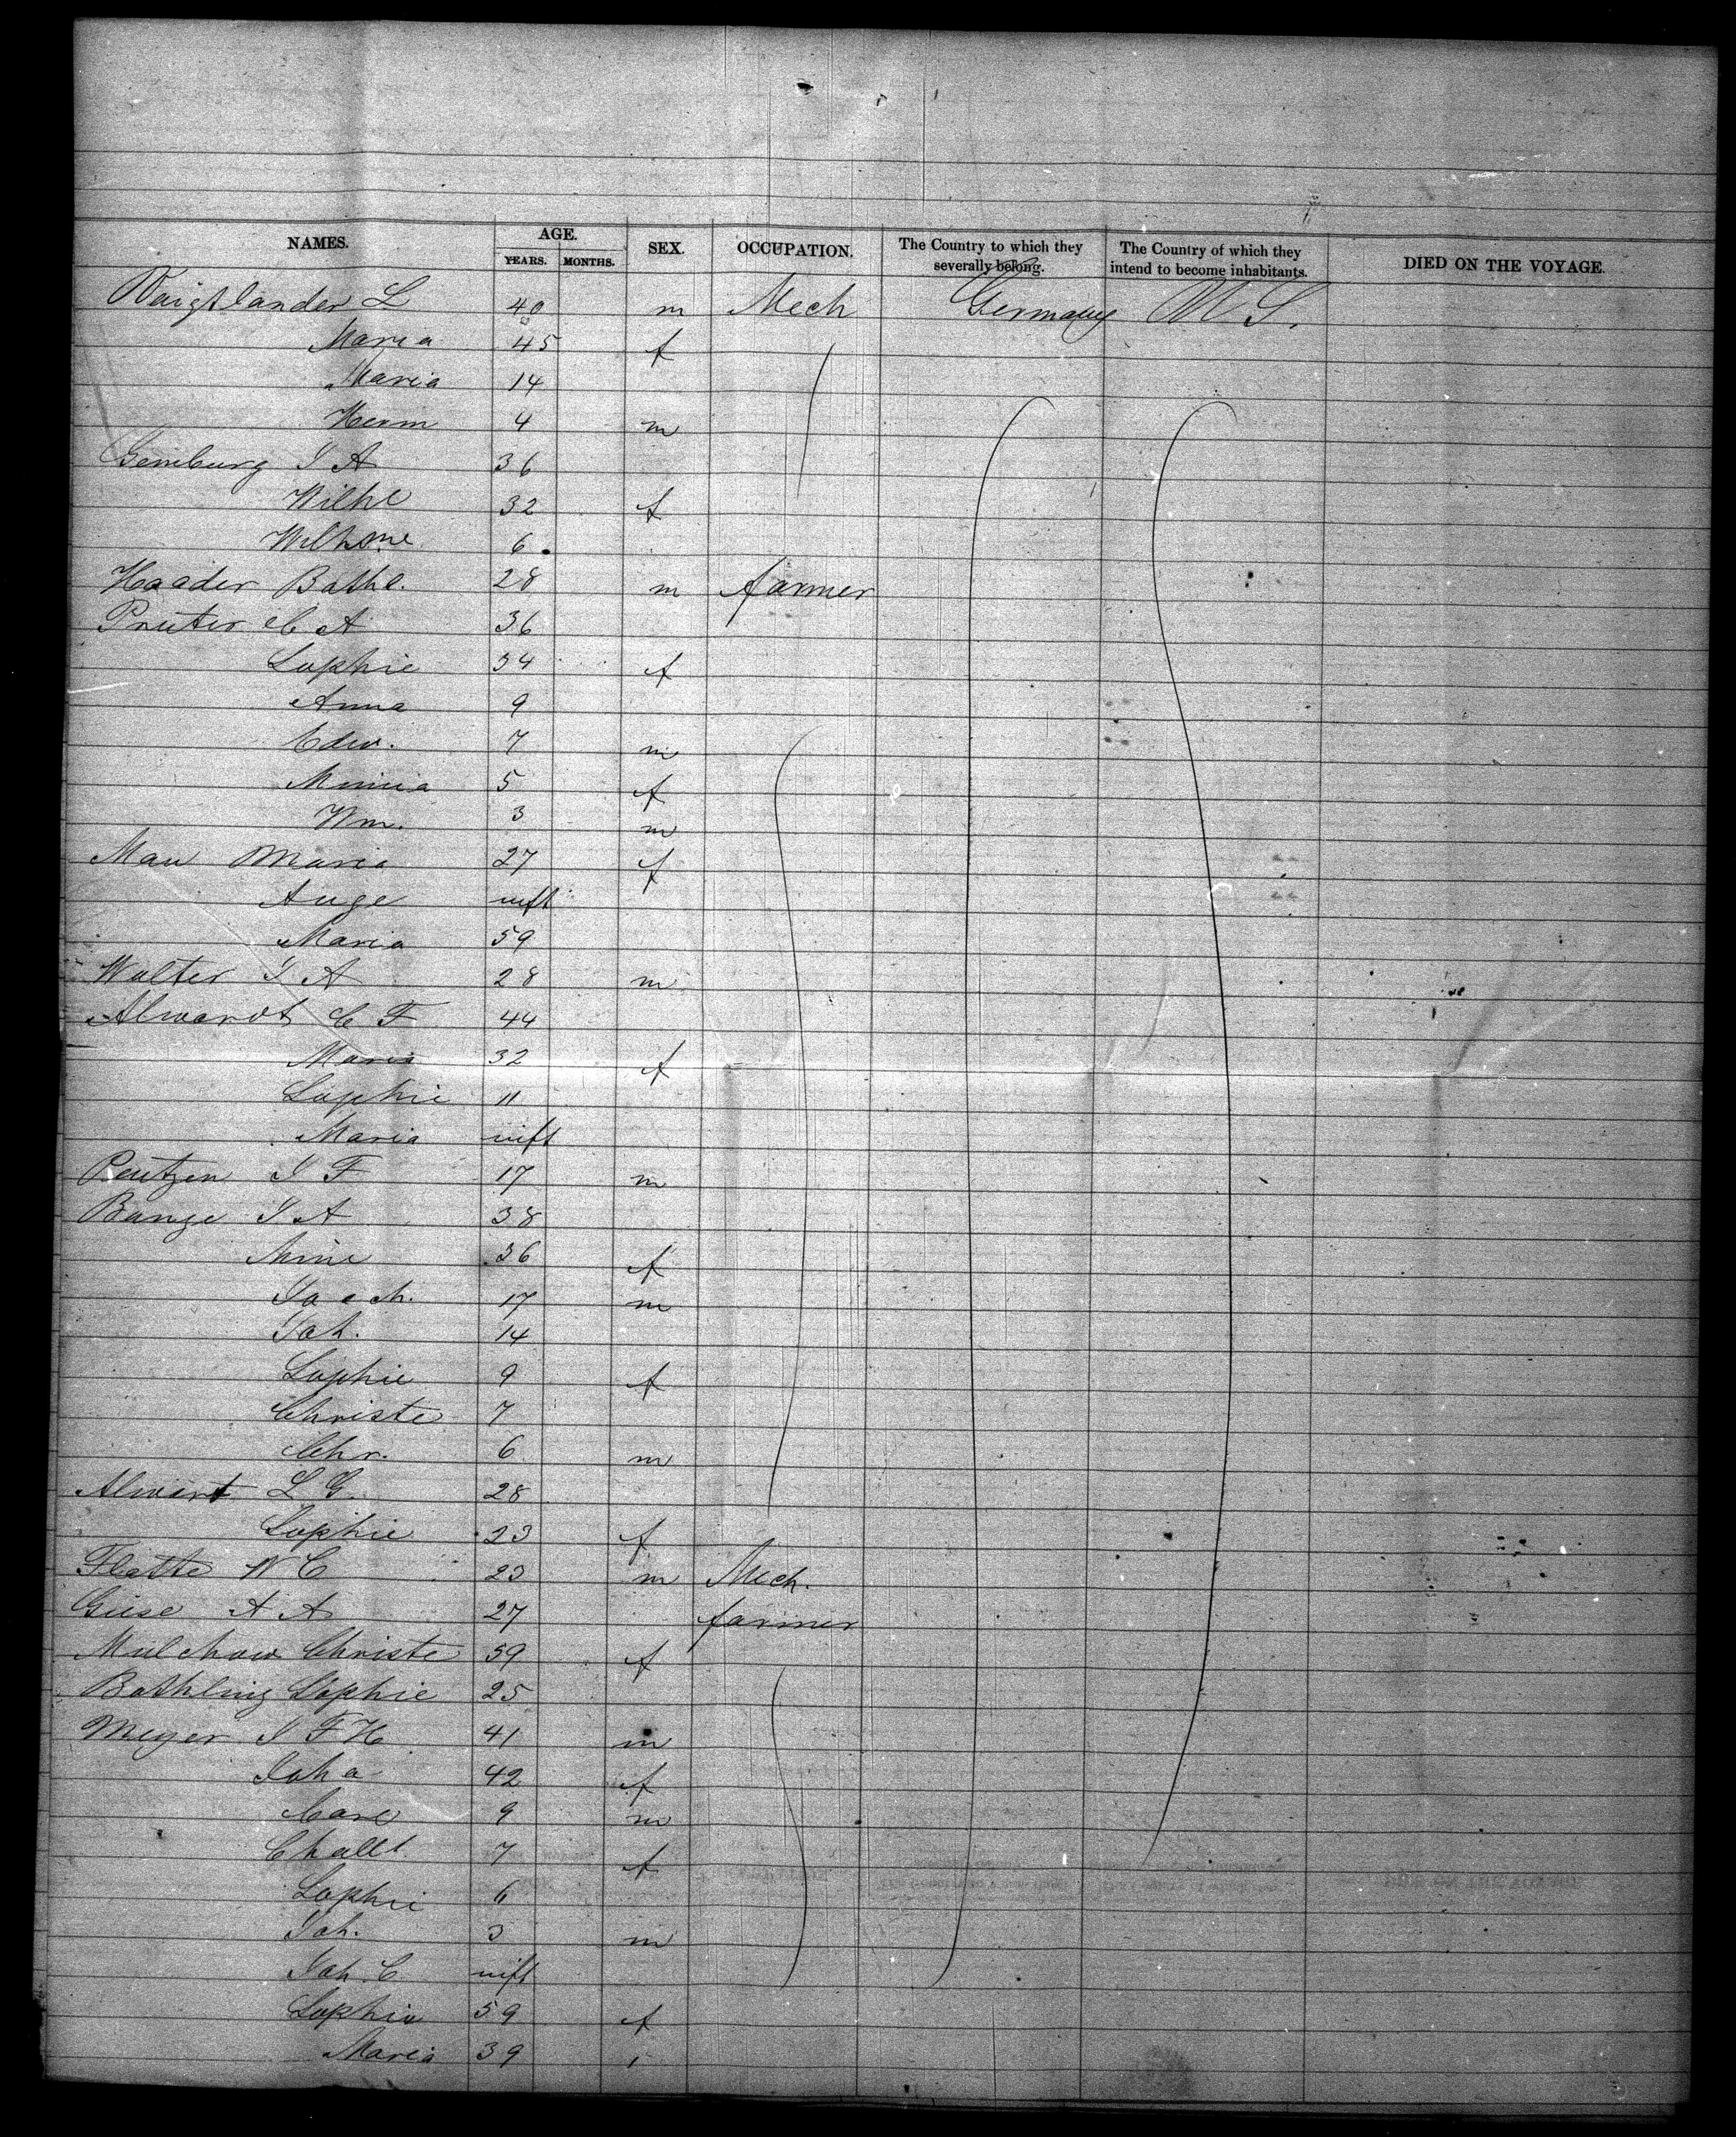 NAMES. AGE. YEARS. MONTHS. SEX. OCCUPATION. The Country to which they severally belong. The Country of which they intend to become inhabitants. DIED ON THE VOYAGE.
Voigtlander L 40 m Mech Germany U S.
Maria 45 f
Maria 14
Herm 4 m
Gemburg J A 36
Wilhe 32 f
Wilhme 6
Haader Bathe. 28 m farmer
Pruter C A 36
Sophie 34 f
Anna 9
Edw. 7 m
Minna 5 f
Wm. 3 m
Mau Maria 27 f
Auge inft
Maria 59
Walter J A 28 m
Alwardt C F 44
Maria 32 f
Sophie 11
Maria inft
Peutzen J F 17 m
Bange J A 38
Mine 36 f
Joach. 17 m
Joh. 14
Sophie 9 f
Christe 7
Chr. 6 m
Alwart L G. 28
Sophie 23 f
Flatte W C 23 m Mech.
Giese A A 27 farmer
Mulchow Christe 59 f
Bathling Sophie 25
Meyer J F H 41 m
Joha 42 f
Carl 9 m
Challt 7 f
Sophi 6
Joh. 3 m
Joh. C inft
Sophie 59 f
Maria 39